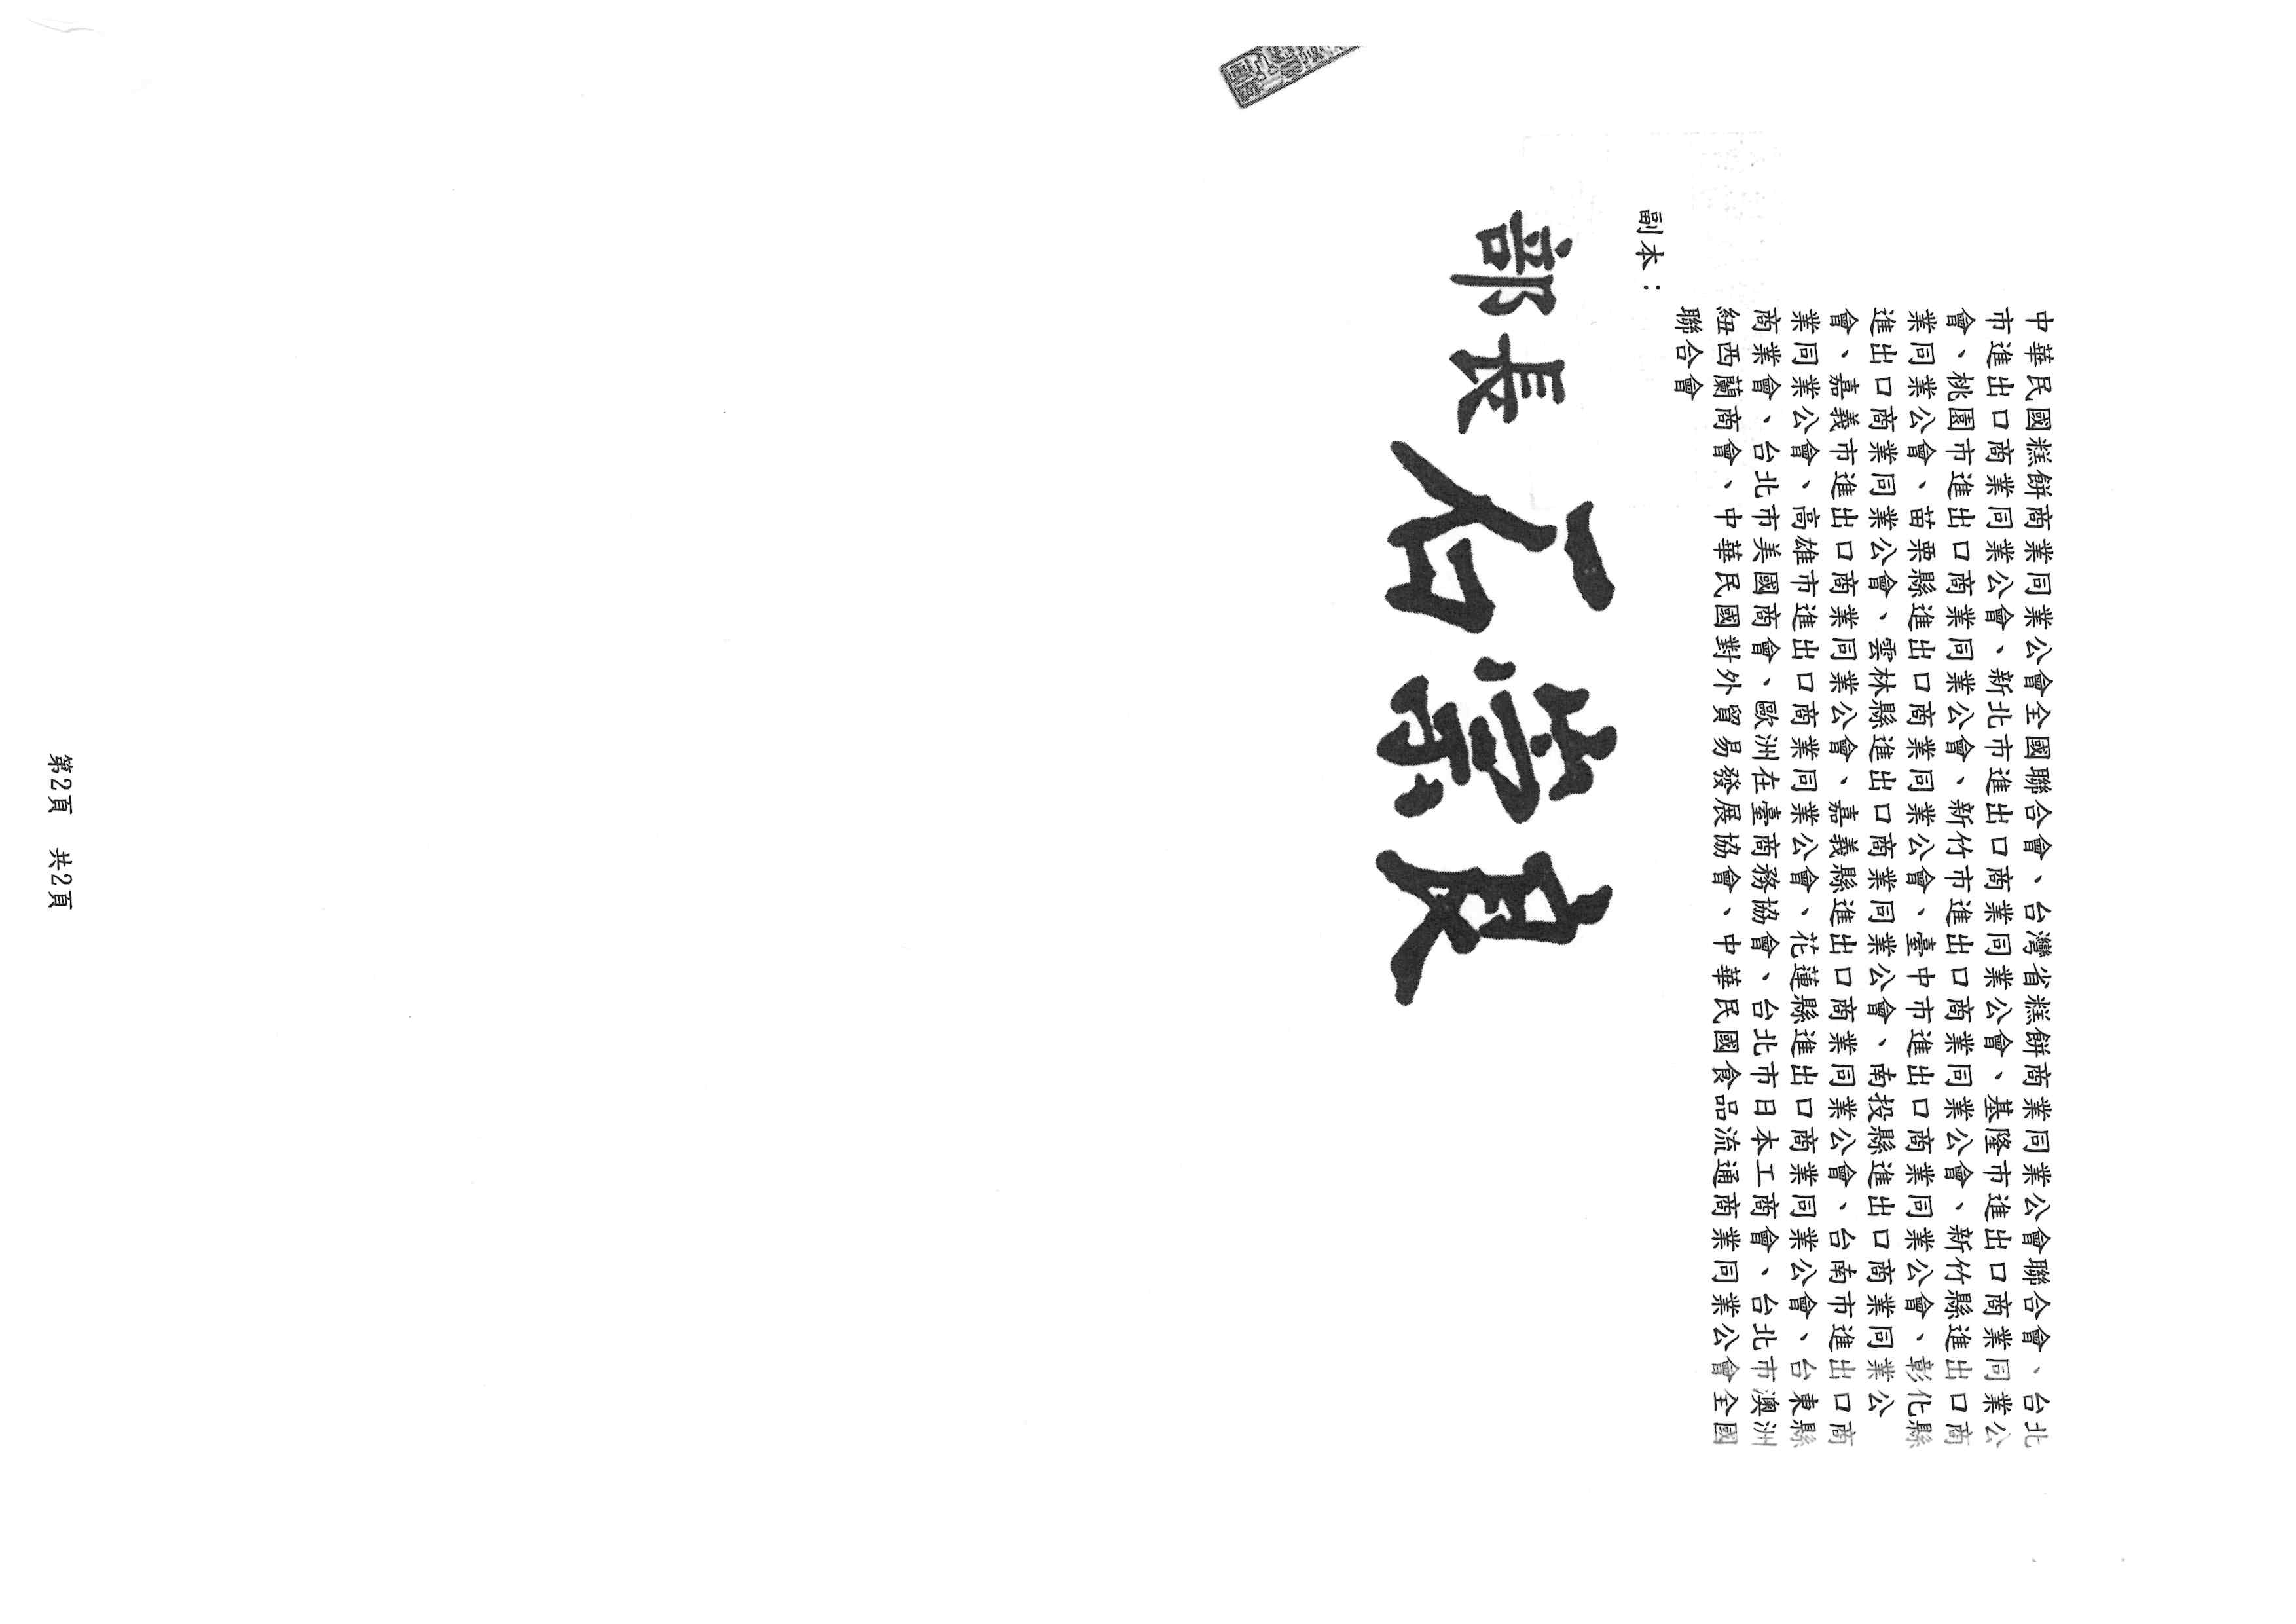 中華民國糕餅商業同業公會全國聯合會、台灣省糕餅商業同業公會聯合會、台北
市進出口商業同業公會、新北市進出口商業同業公會、基隆市進出口商業同業公
會、桃園市進出口商業同業公會、新竹市進出口商業同業公會、新竹縣進出口商
業同業公會、苗栗縣進出口商業同業公會、臺中市進出口商業同業公會、彰化縣
進出口商業同業公會、雲林縣進出口商業同業公會、南投縣進出口商業同業公
會、嘉義市進出口商業同業公會、嘉義縣進出口商業同業公會、台南市進出口商
業同業公會、高雄市進出口商業同業公會、花蓮縣進出口商業同業公會、台東縣
商業會、台北市美國商會、歐洲在臺商務協會、台北市日本工商會、台北市澳洲
紐西蘭商會、中華民國對外貿易發展協會、中華民國食品流通商業同業公會全國
聯合會
副本：
部長石崇良
第2頁 共2頁